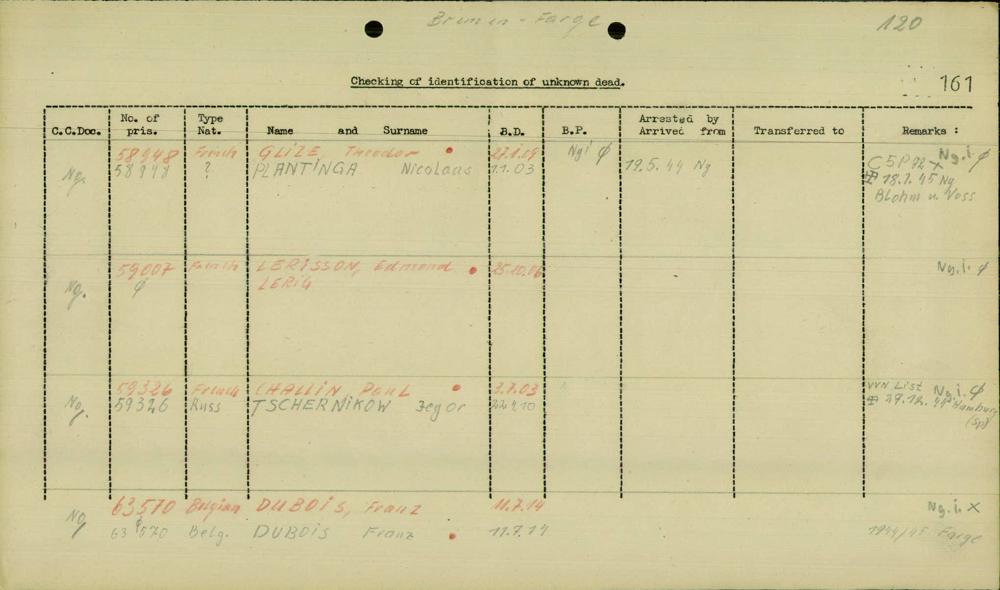 Bremen - Farge 120
Checking of identification of unknown dead. 161
C.C.Doc. No. of pris. Type Nat. Name and Surname B.D. B.P. Arrested by Arrived from Transferred to Remarks :
58948 French GLIZE, Theodor Ng i ∅ Ng.i. ∅
Ng. 58948 ? PLANTINGA Nicolaas 1.1.03 19.5.44 Ng
18.1.45 Ng
Blohm u. Voss
59007 French LERISSON, Edmond 25.10.06 Ng.i. ∅
Ng. ∅ LERIG
59326 French CHALLIN, Paul 3.7.03 VVN List Ng.i. ∅
Ng. 59326 Russ TSCHERNIKOW Jegor Hamburg
(Sp)
63570 Belgian DUBOIS, Franz 11.7.14 Ng.i. X
Ng 63570 Belg. DUBOIS Franz 11.7.14 1944/45 Farge